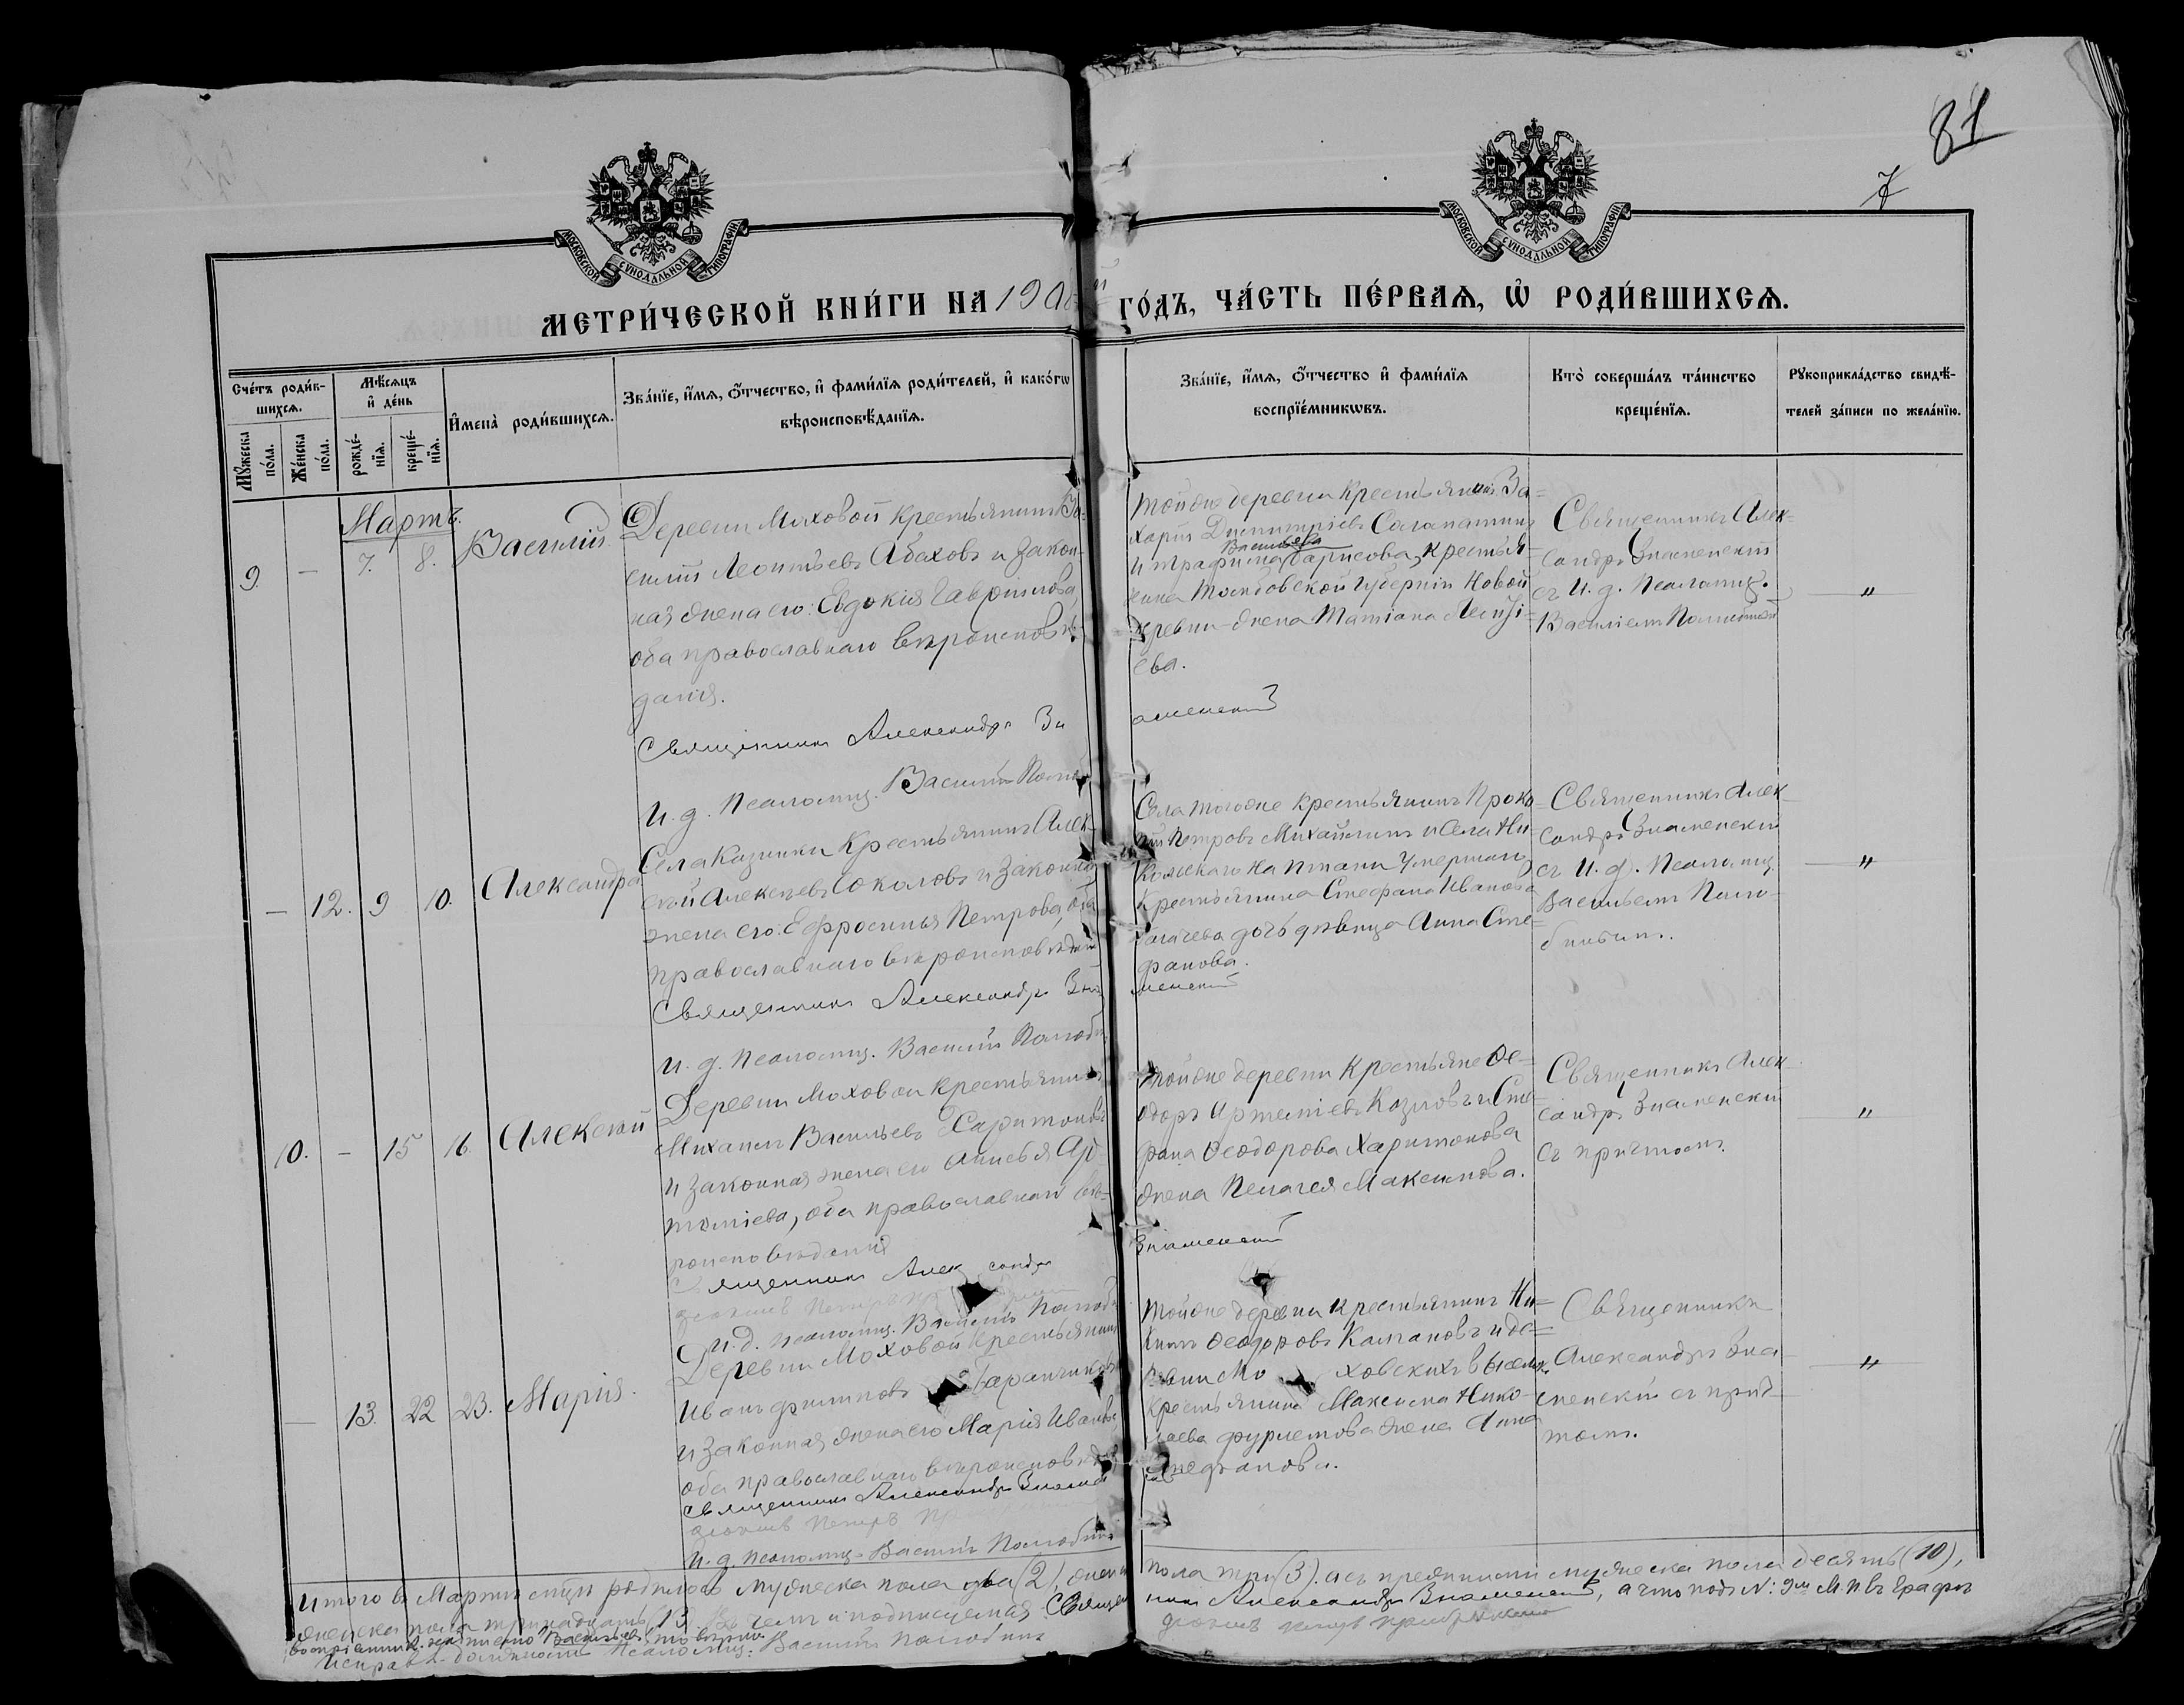 81
7
МОСКОВСКОЙ СѴНОДАЛЬНОЙ ТИПОГРАФІИ
МОСКОВСКОЙ СѴНОДАЛЬНОЙ ТИПОГРАФІИ
МЕТРИ́ЧЕСКОЙ КНИ́ГИ НА 190
ГО́ДЪ, ЧА́СТЬ ПЕ́РВАѦ, Ѽ РОДИ́ВШИХСѦ.
Сче́тъ роди́в-
шихсѧ.
Мꙋ́жеска по́ла.
Же́нска по́ла.
Мѣ́сѧцъ и҆ де́нь
рожде́-нїѧ.
креще́-нїѧ.
И҆мена̀ роди́вшихсѧ.
Зва́нїе, и҆́мѧ, ѻ҆́тчество, и҆ фами́лїѧ роди́телей, и҆ како́гѡ
вѣроисповѣ́данїѧ.
Зва́нїе, и҆́мѧ, ѻ҆́тчество и҆ фами́лїѧ
воспрїе́мникѡвъ.
Кто̀ соверша́лъ та́инство
креще́нїѧ.
Рꙋкоприкла́дство свидѣ́-
телей за́писи по жела́нїю.
Мартъ.
9. — 7. 8. Василій
Деревни Моховой крестьянинъ Ва-
силій Леонтьевъ Абаховъ и закон-
ная жена его: Евдокія Гаврилова,
оба православнаго вѣроисповѣ-
данія.
Священникъ Александръ Зн
И. д. Псаломщ. Василій
Тойже деревни крестьянинъ За-
харій Димитріевъ
Васильева
крестья-
нина Тамбовской губерніи Новой
деревни жена Татіана
ева.
аменскій
Священникъ Алек-
сандръ Знаменскій
съ И. д. Псаломщ.
Василіемъ
"
— 12. 9 10. Александра
Села Казинки Крестьянинъ Алек-
сѣй Алексѣевъ Соколовъ и законная
жена его: Ефросинья Петрова, оба
православнаго вѣроисповѣданія
Священникъ Александръ Зна
И. д. Псаломщ. Василій
Села тогоже крестьянинъ Проко-
пій Петровъ Михайлинъ и села Ни-
кольскаго на умершаго
Крестьянина Стефана Иванова
дочь дѣвица Анна Сте-
фанова.
менскій
Священникъ Алек-
сандръ Знаменскій
съ И. д. Псаломщ.
Васильемъ
"
10. — 15 16. Алексѣй
Деревни Моховой крестьянинъ
Михаилъ Васильевъ Харитоновъ
и законная жена его Анисья Ар-
темьева, оба православнаго вѣ-
роисповѣданія
Священникъ Александръ
И. д. Псаломщ. Василій
Тойже деревни крестьяне Ѳе-
одоръ Артемьевъ Козловъ и Сте-
фана Ѳеодорова Харитонова
жена Пелагея Максимова.
Знаменскій
Священникъ Алек
сандръ Знаменскій
съ причтомъ.
"
— 13. 22 23. Марія.
Деревни Моховой крестьянинъ
Иванъ Филиповъ Таранчиковъ
и законная жена его Марія Иванова
оба православнаго вѣроисповѣд
Священникъ Александръ Знаме
И. д. Псаломщ. Василій
Тойже деревни крестьянинъ Ни-
Ѳеодоровъ и де-
ревни Моховскихъ выселк
крестьянина Максима Нико-
лаева Фурлетова жена Анна
Стефанова.
Священникъ
Александръ Зна-
менскій съ прич-
томъ.
"
Итого въ Мартѣ мцѣ родилось мужеска пола два (2), женск
пола три (3). а съ прежними мужеска пола десять (10),
женска пола тринадцать (13). Въ чемъ и подписуемся: Священ
никъ Александръ Знаменскій, а что подъ №: 9м М. п. въ графѣ
Исправл. должность Псаломщ: Василій